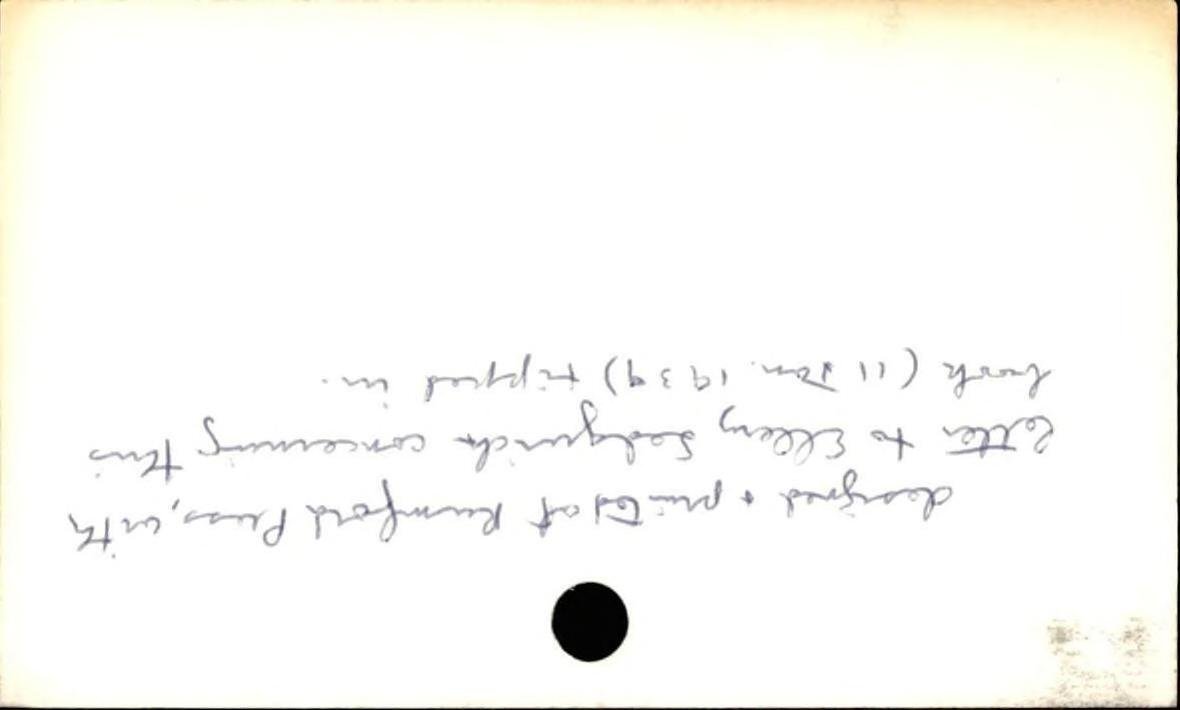 designed + printed at Rumford Press, with
letter to Ellery Sedgwick concerning this
book (11 Jan. 1939) tipped in.